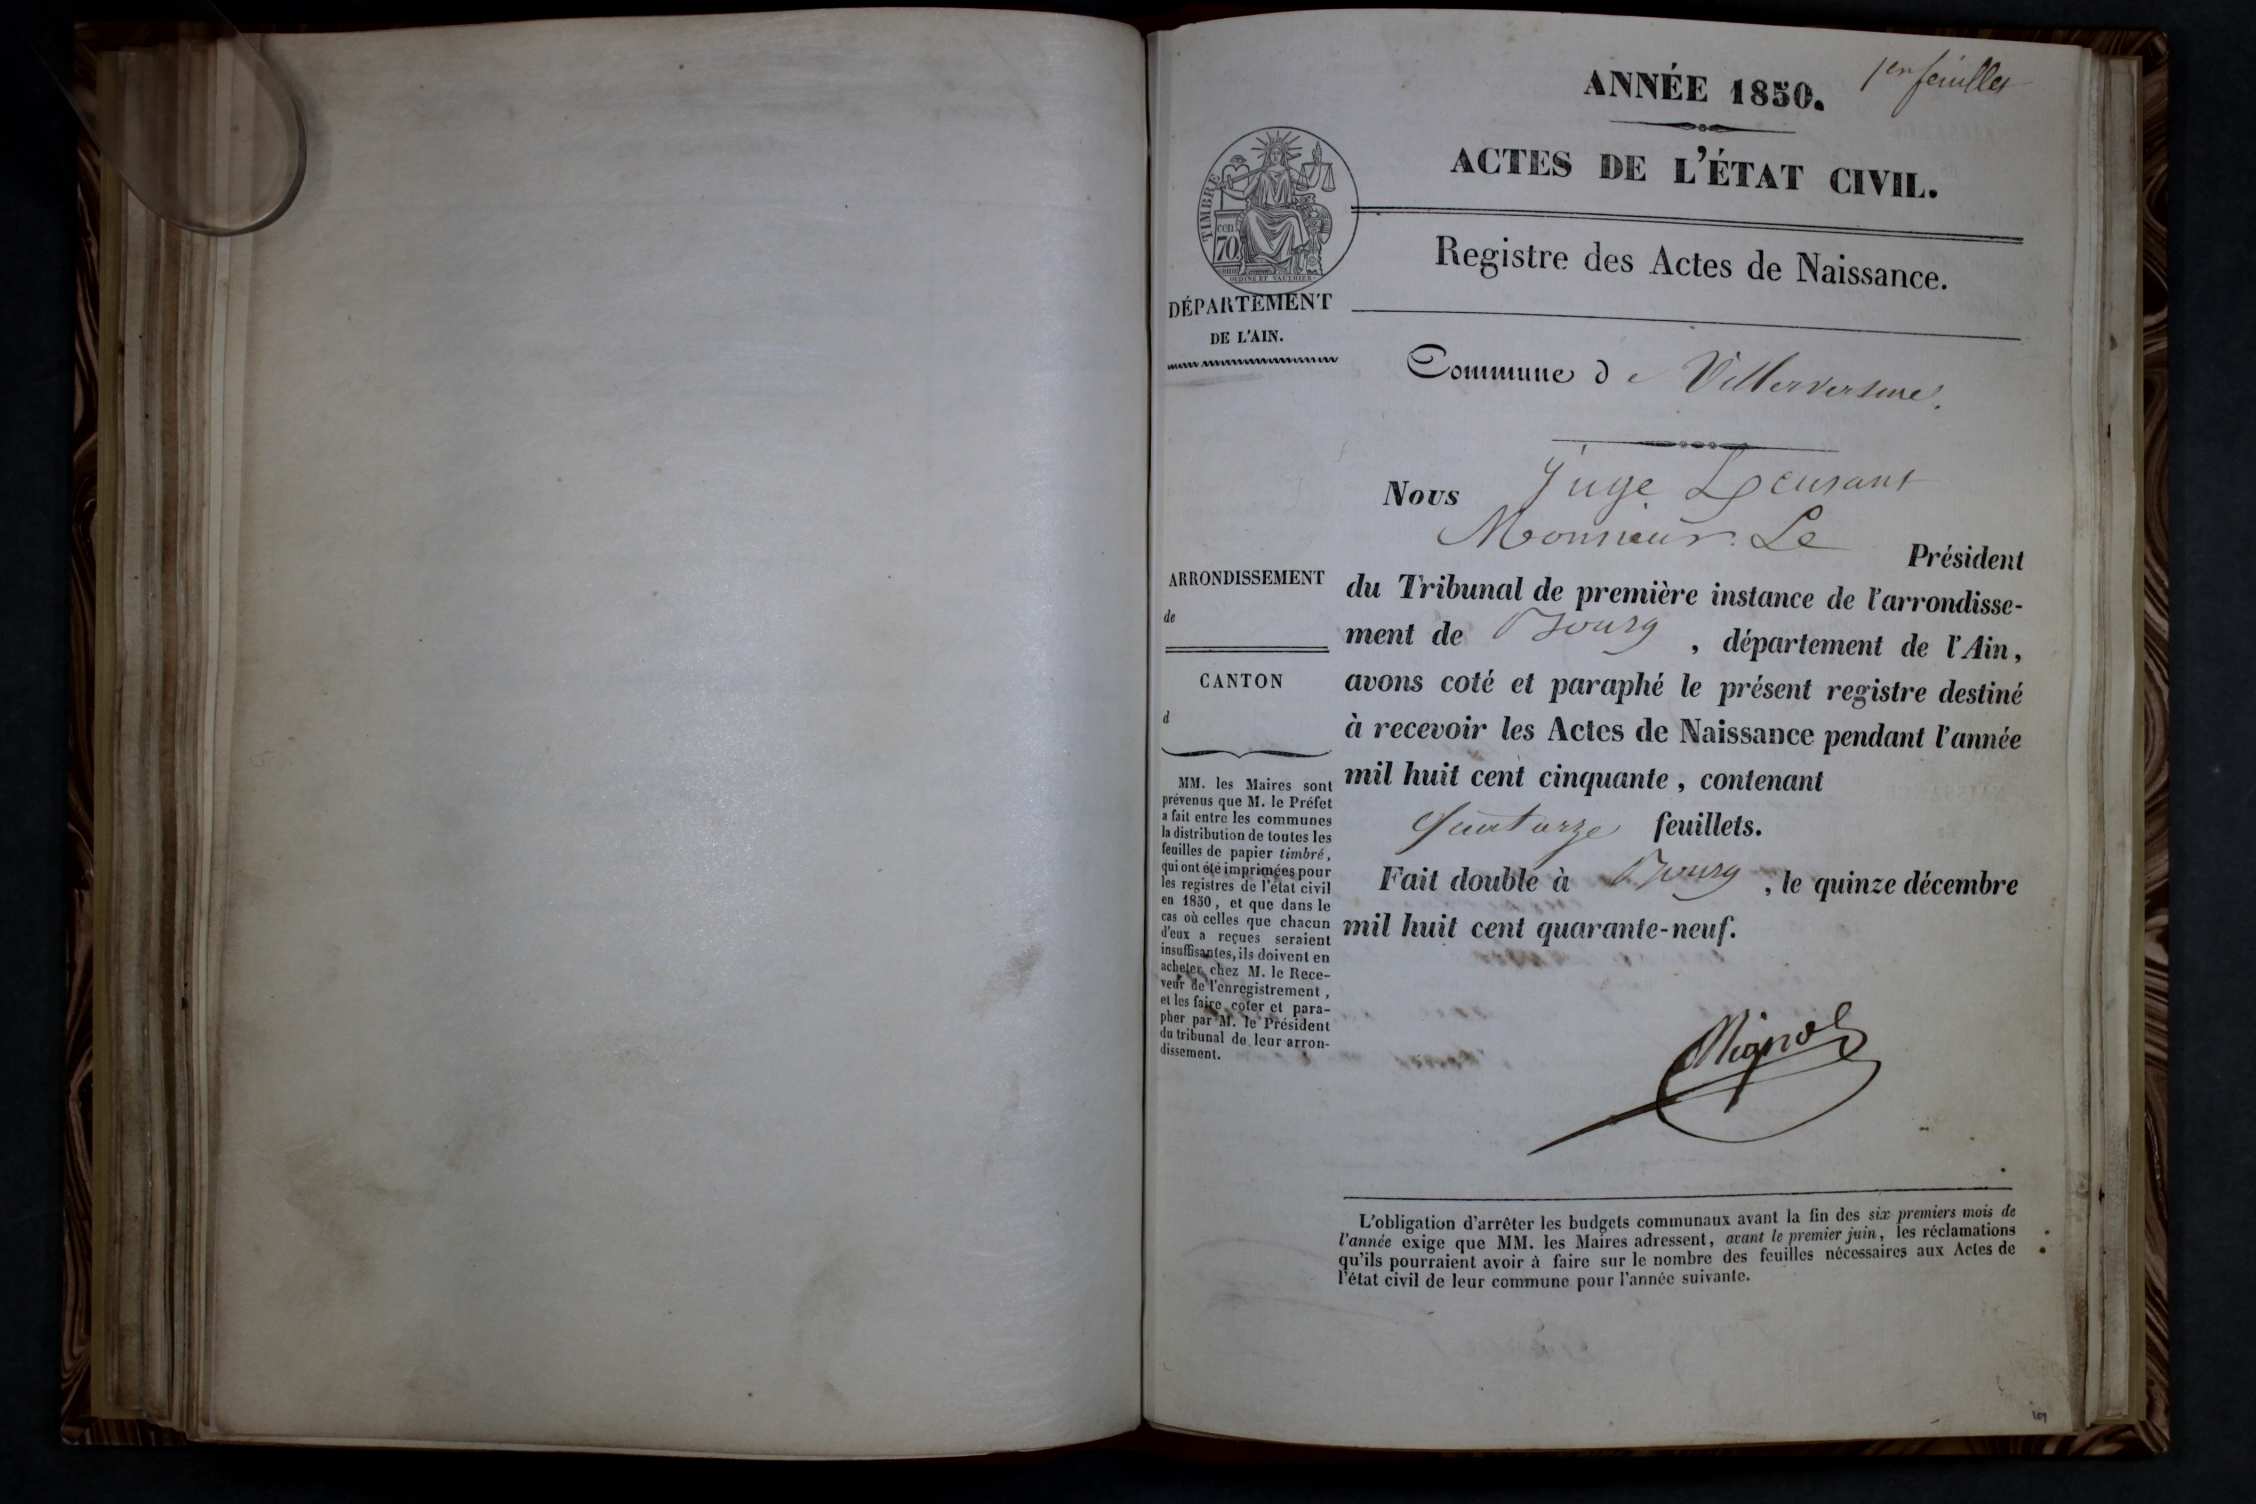 1er feuillet
ANNÉE 1850.
ACTES DE L'ÉTAT CIVIL.
TIMBRE
cent
70
Registre des Actes de Naissance.
DÉPARTEMENT
DE L'AIN.
Commune de Villereversure.
Nous Juge
Monsieur Le Président
ARRONDISSEMENT
de
du Tribunal de première instance de l'arrondisse-
ment de Bourg, département de l'Ain,
CANTON
d
avons coté et paraphé le présent registre destiné
à recevoir les Actes de Naissance pendant l'année
mil huit cent cinquante, contenant
quatorze feuillets.
Fait double à Bourg, le quinze décembre
mil huit cent quarante-neuf.
MM. les Maires sont
prévenus que M. le Préfet
a fait entre les communes
la distribution de toutes les
feuilles de papier timbré,
qui ont été imprimées pour
les registres de l'état civil
en 1850, et que dans le
cas où celles que chacun
d'eux a reçues seraient
insuffisantes, ils doivent en
acheter chez M. le Rece-
veur de l'enregistrement,
et les faire coter et para-
pher par M. le Président
du tribunal de leur arron-
dissement.
L'obligation d'arrêter les budgets communaux avant la fin des six premiers mois de
l'année exige que MM. les Maires adressent, avant le premier juin, les réclamations
qu'ils pourraient avoir à faire sur le nombre des feuilles nécessaires aux Actes de
l'état civil de leur commune pour l'année suivante.